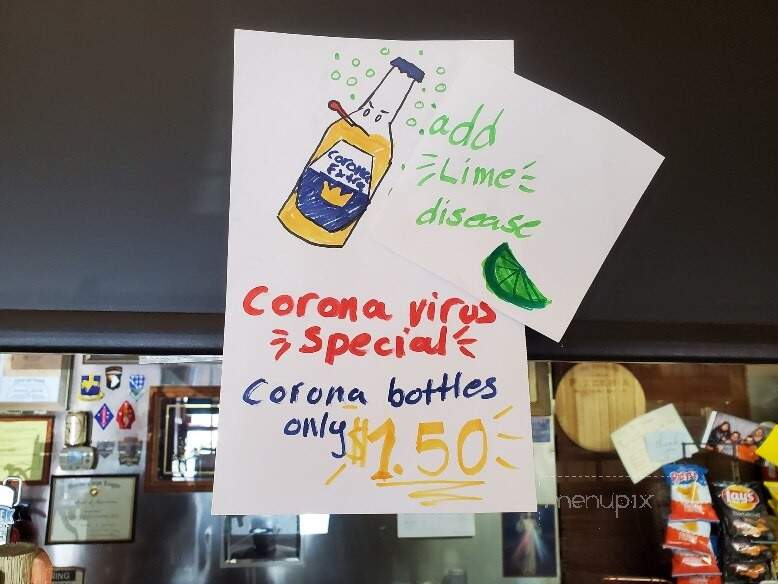 Corona
Extra
add
Lime
disease
Corona virus
special
Corona bottles
only $1.50
menupix
Lay's